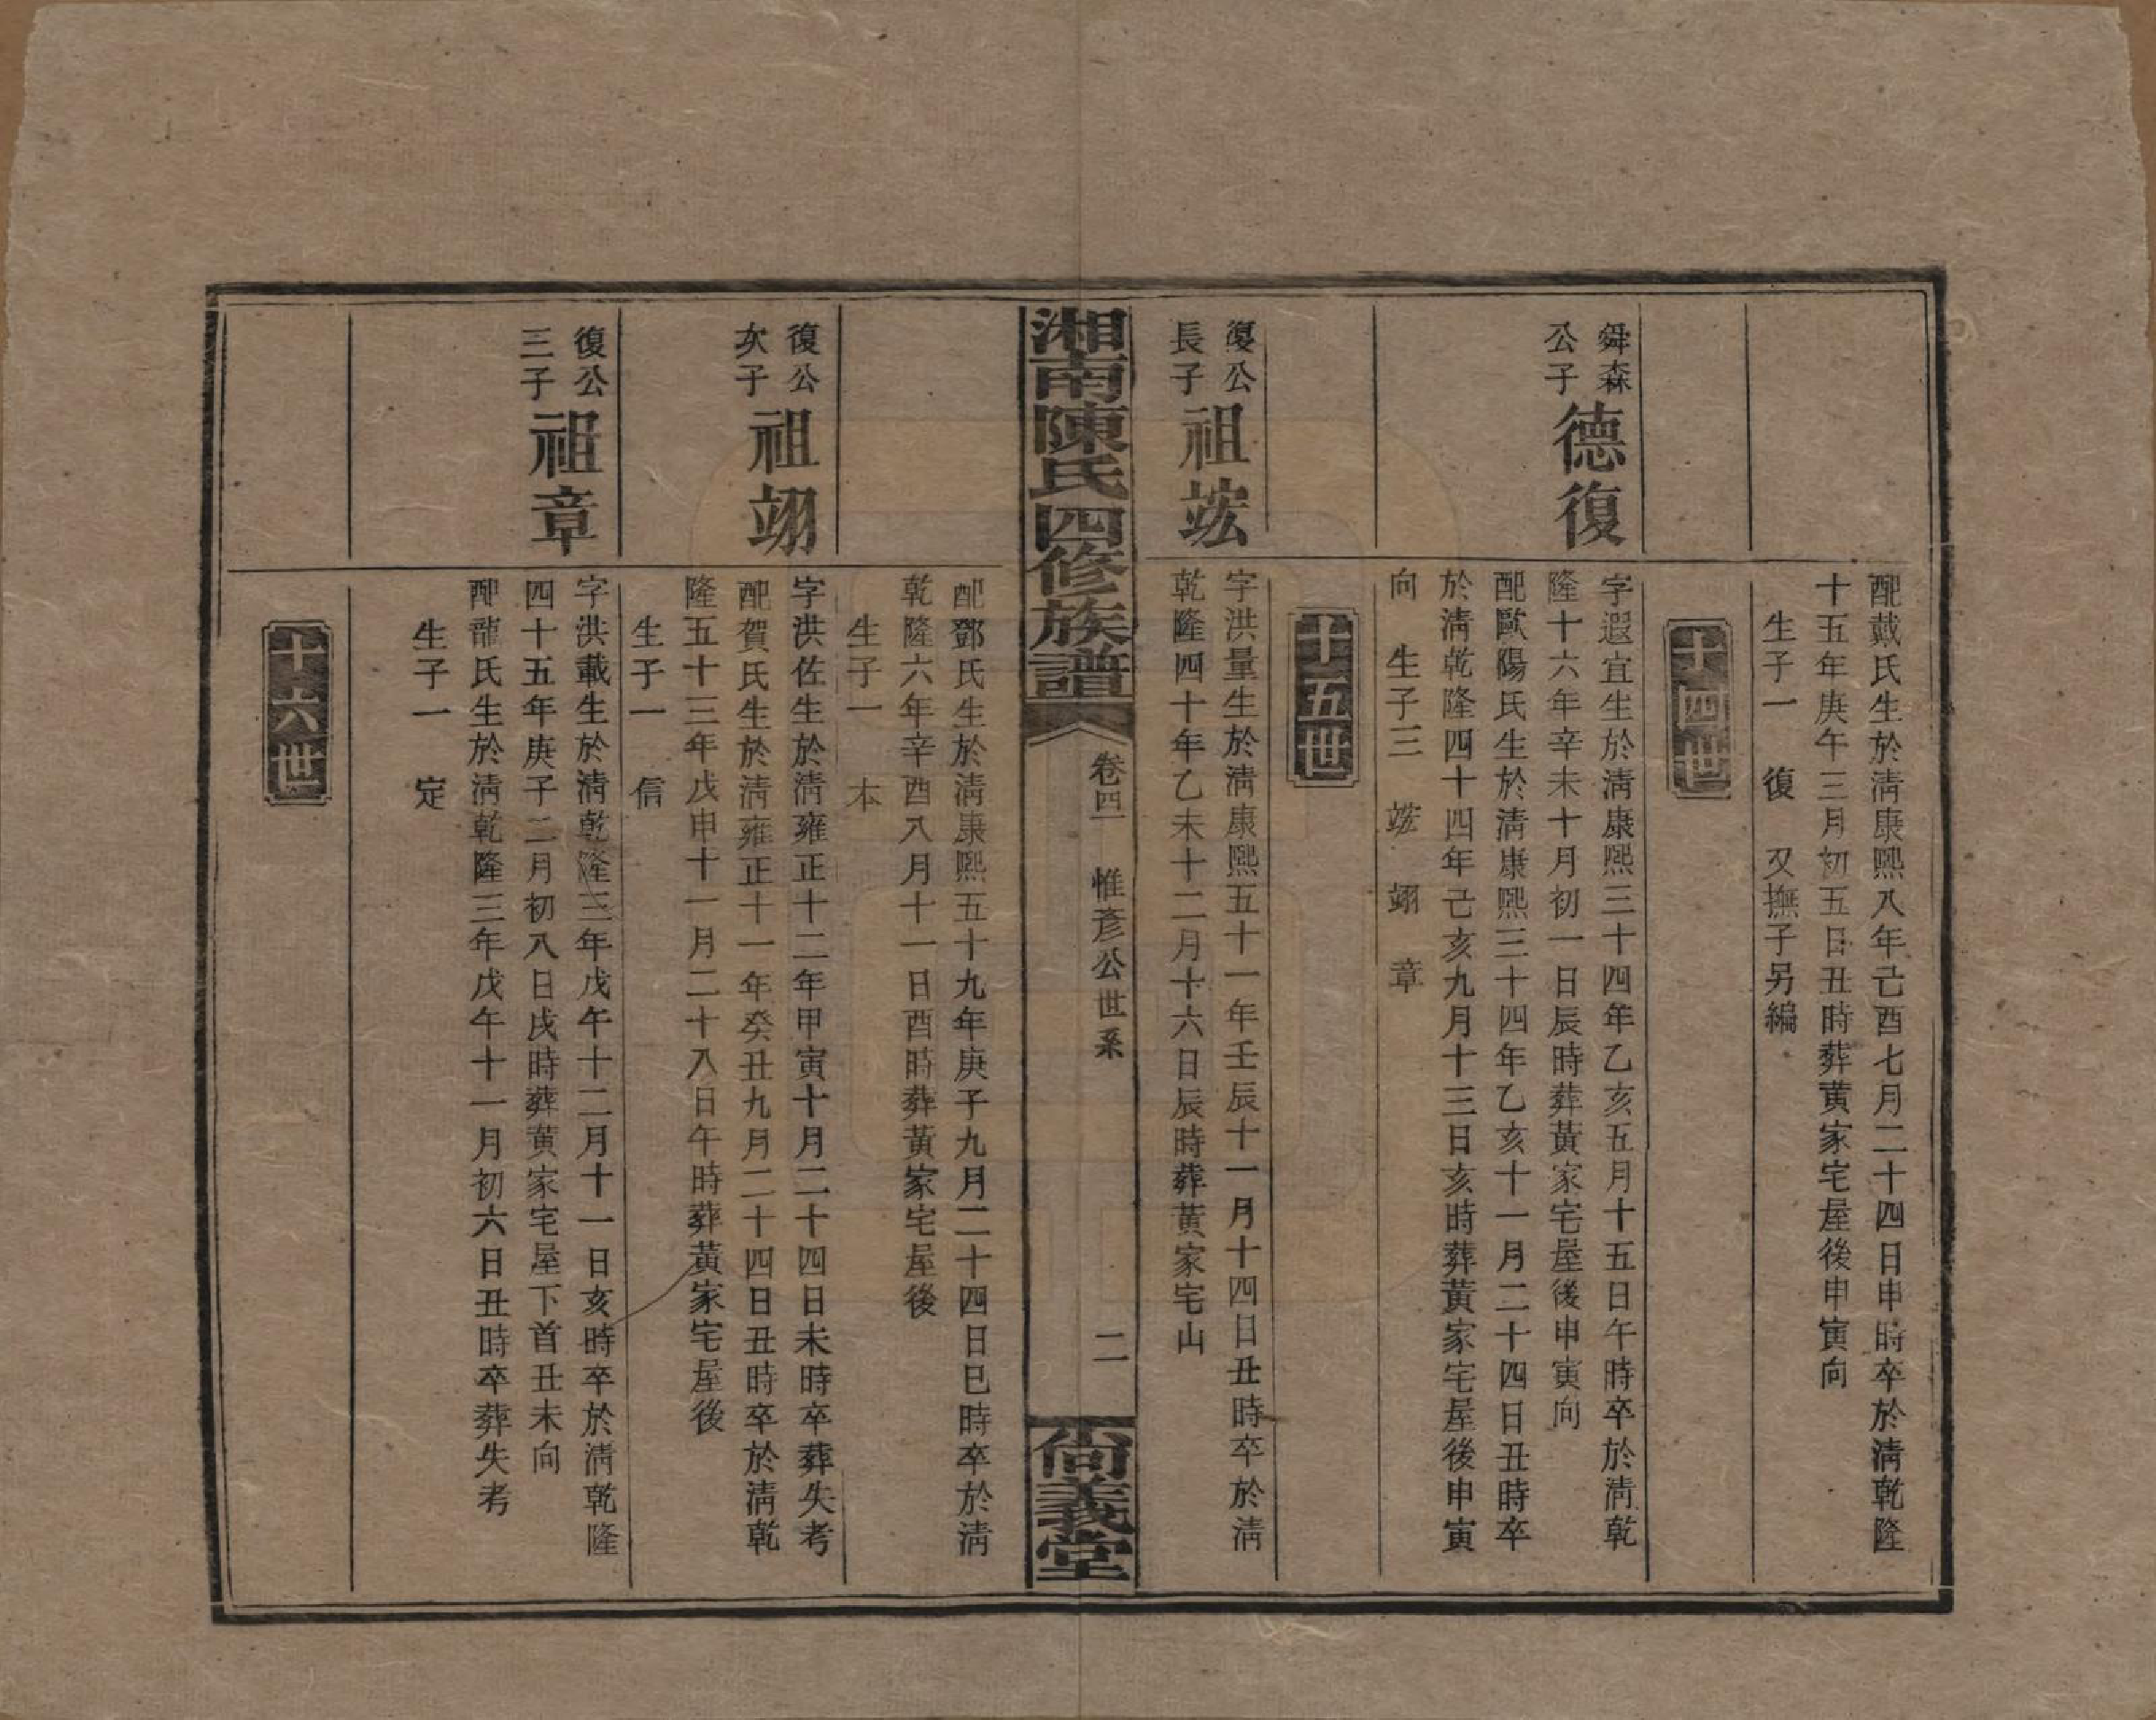 配戴氏生於清康熙八年己酉七月二十四日申時卒於清乾隆
十五年庚午三月初五日丑時葬黃家宅屋後申寅向
生子一　復　又撫子另編
十四世
舜森
公子
德復
字遐宜生於清康熙三十四年乙亥五月十五日午時卒於清乾
隆十六年辛未十月初一日辰時葬黃家宅屋後申寅向
配歐陽氏生於清康熙三十四年乙亥十一月二十四日丑時卒
於清乾隆四十四年己亥九月十三日亥時葬黃家宅屋後申寅
向　生子三　竑　翊　章
十五世
復公
長子
祖竑
字洪量生於清康熙五十一年壬辰十一月十四日丑時卒於清
乾隆四十年乙未十二月十六日辰時葬黃家宅山
湘南陳氏四修族譜
卷四　惟彥公世系
二
尙義堂
配鄧氏生於清康熙五十九年庚子九月二十四日巳時卒於清
乾隆六年辛酉八月十一日酉時葬黃家宅屋後
生子一　本
復公
次子
祖翊
字洪佐生於清雍正十二年甲寅十月二十四日未時卒葬失考
配賀氏生於清雍正十一年癸丑九月二十四日丑時卒於清乾
隆五十三年戊申十一月二十八日午時葬黃家宅屋後
生子一　信
復公
三子
祖章
字洪載生於清乾隆三年戊午十二月十一日亥時卒於清乾隆
四十五年庚子二月初八日戌時葬黃家宅屋下首丑未向
配龍氏生於清乾隆三年戊午十一月初六日丑時卒葬失考
生子一　定
十六世